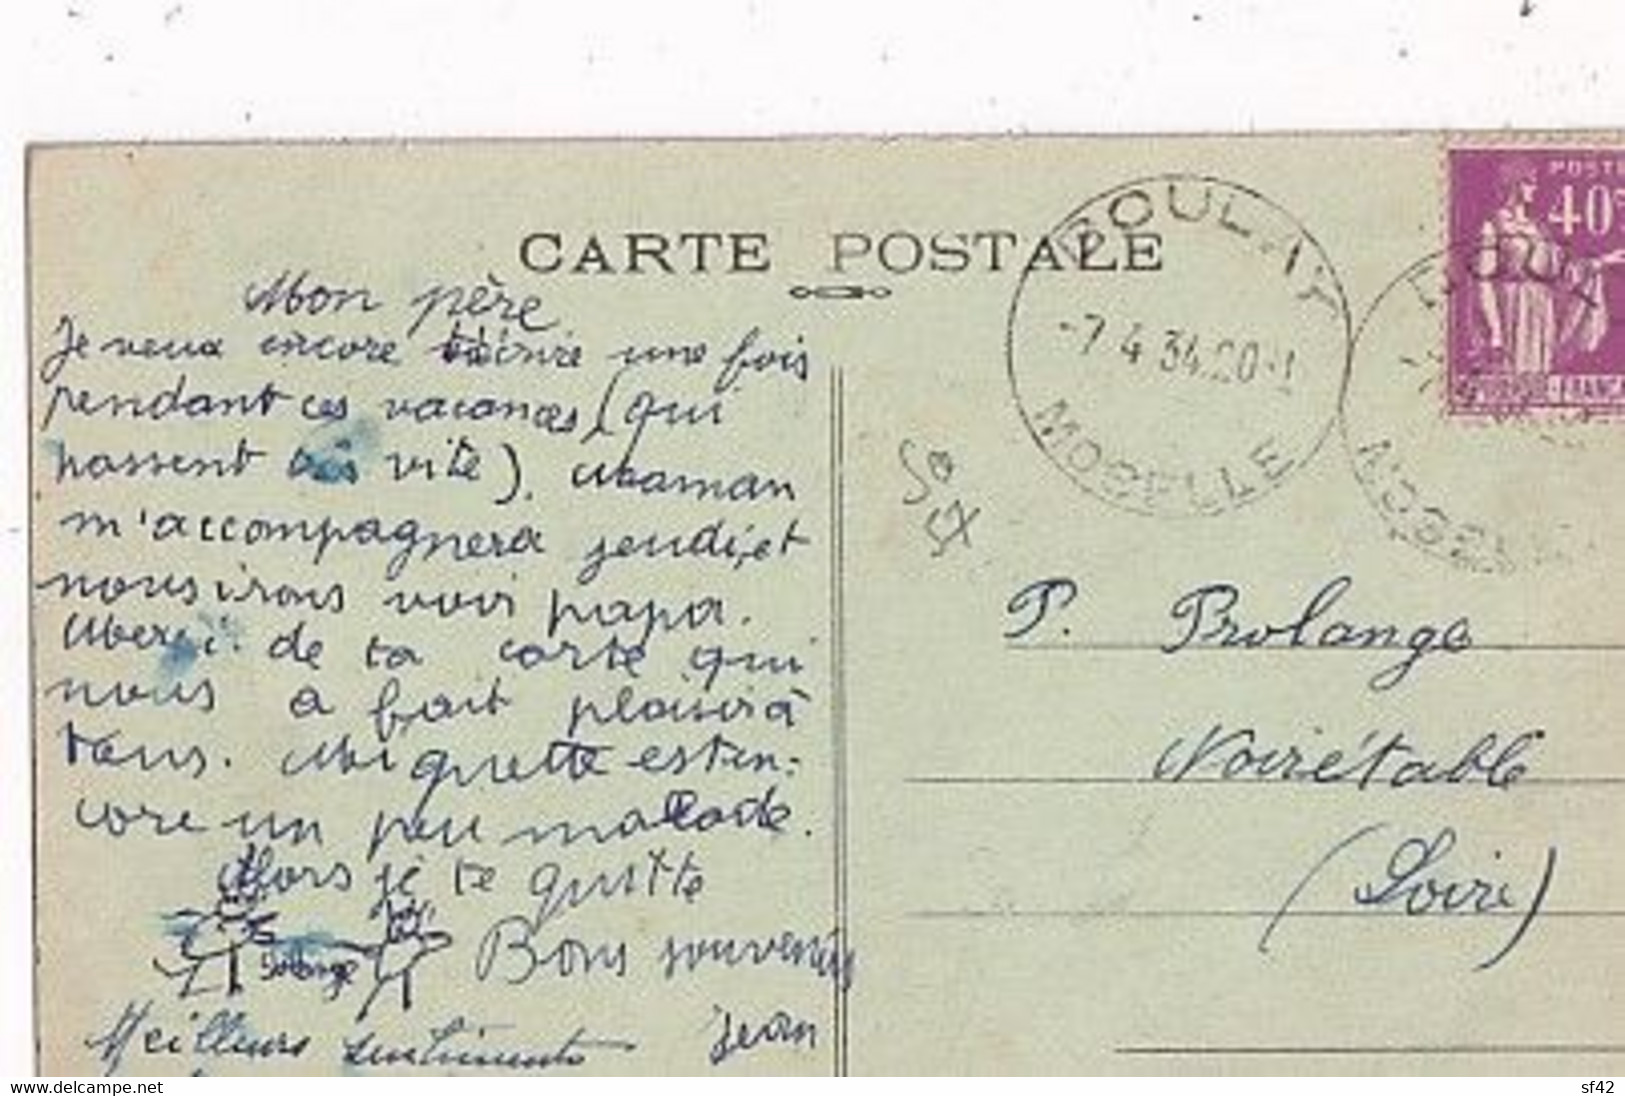 CARTE POSTALE
BOULAY
-7 4 34
MOSELLE
POSTE
40
FRANÇA
Mon père
Je veux encore t'écrire une fois
pendant ces vacances (qui
passent très vite). Maman
m'accompagnera jeudi, et
nous irons voir papa.
Merci de ta carte qui
nous a fait plaisir à
tous. Miquette est en-
core un peu malade.
Alors je te quitte
Solange
Bons souvenirs
Meilleurs sentiments
Jean
57
P. Prolange
Noirétable
(Loire)
www.delcampe.net
sf42